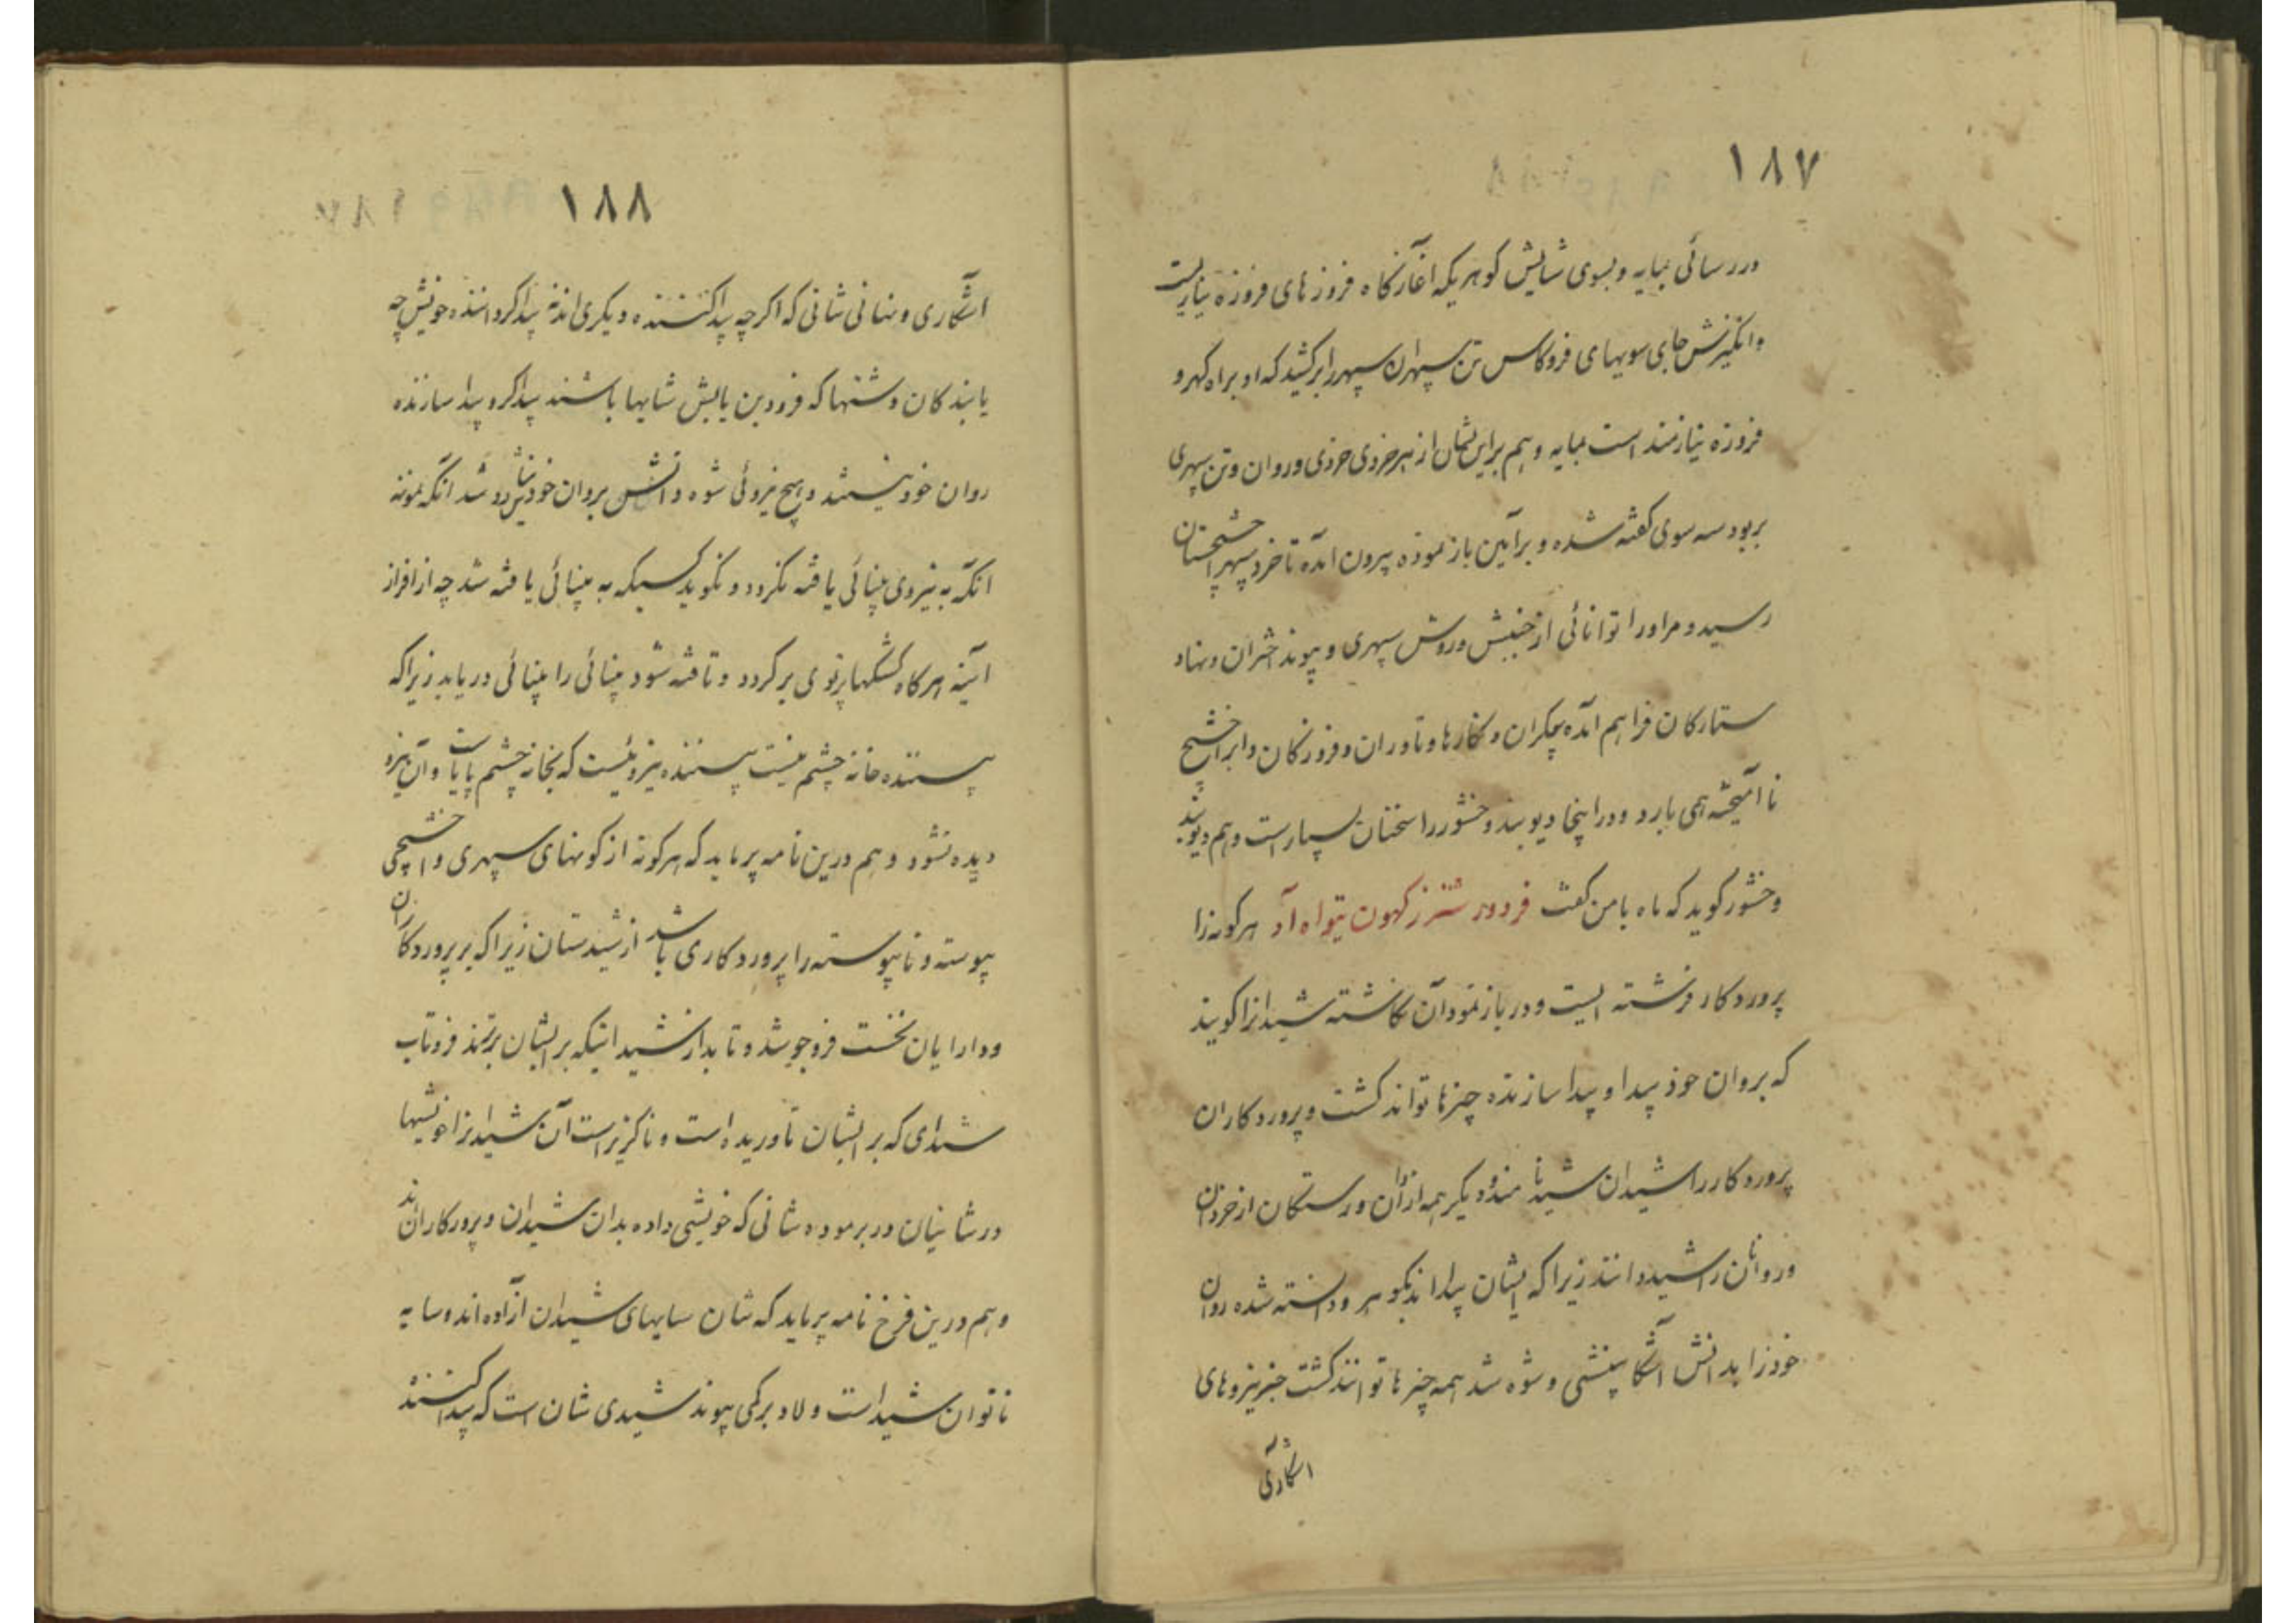 ١٨٧
در رسائی بمایه و بسوی شایش کوهر یکه اغآزنکاه فروزهای فروزه نیازیست
و انکیزش جای سویهای فروکاس تن سپهران سپهر را برکشید که او براه کهر و
فروزه نیازمند است بمایه و هم براین نشان از هر خردی خردی و روان و تن سپهری
بر بود سه سوی کفته شده و برآیین باز نموده بیرون امده تا خرد سپهر اخشیجستان
رسید و مر او را توانائی از جنبش و روش سپهری و پیوند اختران و نهاد
ستارکان فراهم امده پیکران و نکارها و تاوران و فروزکان و ابر اخشیج
نا امیخته همی بارد و در اینجا دیو بند وخشور را سخنان بسیار است و هم دیو بند
وخشور کوید که ماه با من کفت فردور شتررز کهون یتواه آد هر کونه زا
پروردکار فرشته ایست و در باز نمود آن نکاشته شید انرا کویند
که بروان خود پیدا و پیدا سازنده چیزها تواند کشت و پروردکاران
پروردکار را شیدان شید نامند و دیکر همه ازادان و رستکان از خردان
و روانان را شید دانند زیرا که ایشان پیدا اند بکوهر و دانسته شده روان
خود را بدانش اشکا بینشی و شوه شد همه چیزها توانند کشت جز نیروهای
اشکاری
١٨٨
اشکاری و نهانی شانی که اکرچه پیدا کننده دیکری اند نه پیدا کرداننده خویش چه
یابندکان دشتها که فرودین یابش شایها باشند پیدا کر و پیدا سازنده
روان خود نیستند و هیچ نیروئی شوه دانش بروان خود نتاند شد انکه نمونه
انکه به نیروی بینائی یافته نکردد و نکوید کسیکه به بینائی یافته شد چه از افراز
اینه هرکاه کشکها پرتوی بر کردد و تافته شود بینائی را بینائی دریابد زیرا که
بیننده خانه چشم نیست بیننده نیروئیست که بخانه چشم پایاست و آن نیرو
دیده نشود و هم درین نامه پرماید که هرکونه از کونهای سپهری و اخشیجی
پیوسته و ناپیوسته را پروردکاری باشد از شیدستان زیرا که بر پروردکاران
و دارایان نخست فروجوشد و تابد از شید انیکه بر ایشان برتند فروتاب
شدای که بر ایشان تاوریده است و ناکزیر است آن شید را خویشیها
در شانیان در برموده شانی که خویشی داده بدان شیدان و پرورکاران اند
و هم درین فرخ نامه پرماید که شان سایهای شیدان ازاده اند و سایه
ناتوان شید است و لاد بر کمی پیوند شیدی شان است که پیدا کنند